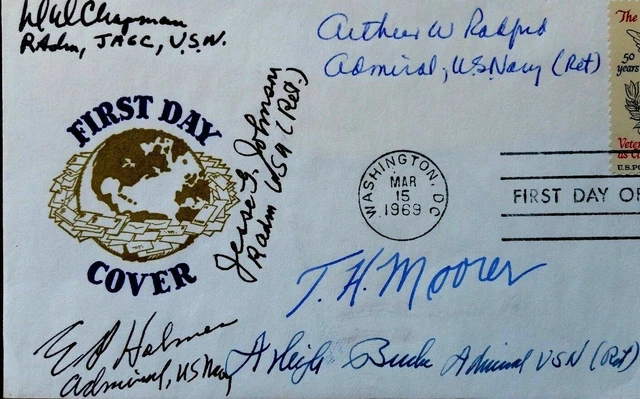 Chapman
RAdm, JAGC, U.S.N.
Arthur W Radford
Admiral, U.S. Navy (Ret)
The
50
years
Veterans
U.S.PO
FIRST DAY
COVER
Jesse G. Johnson
RAdm USN (Ret)
WASHINGTON, DC
MAR
15
1969
FIRST DAY OF
T. H. Moorer
E P Holmes
Admiral, US Navy
Arleigh Burke Admiral USN (Ret)